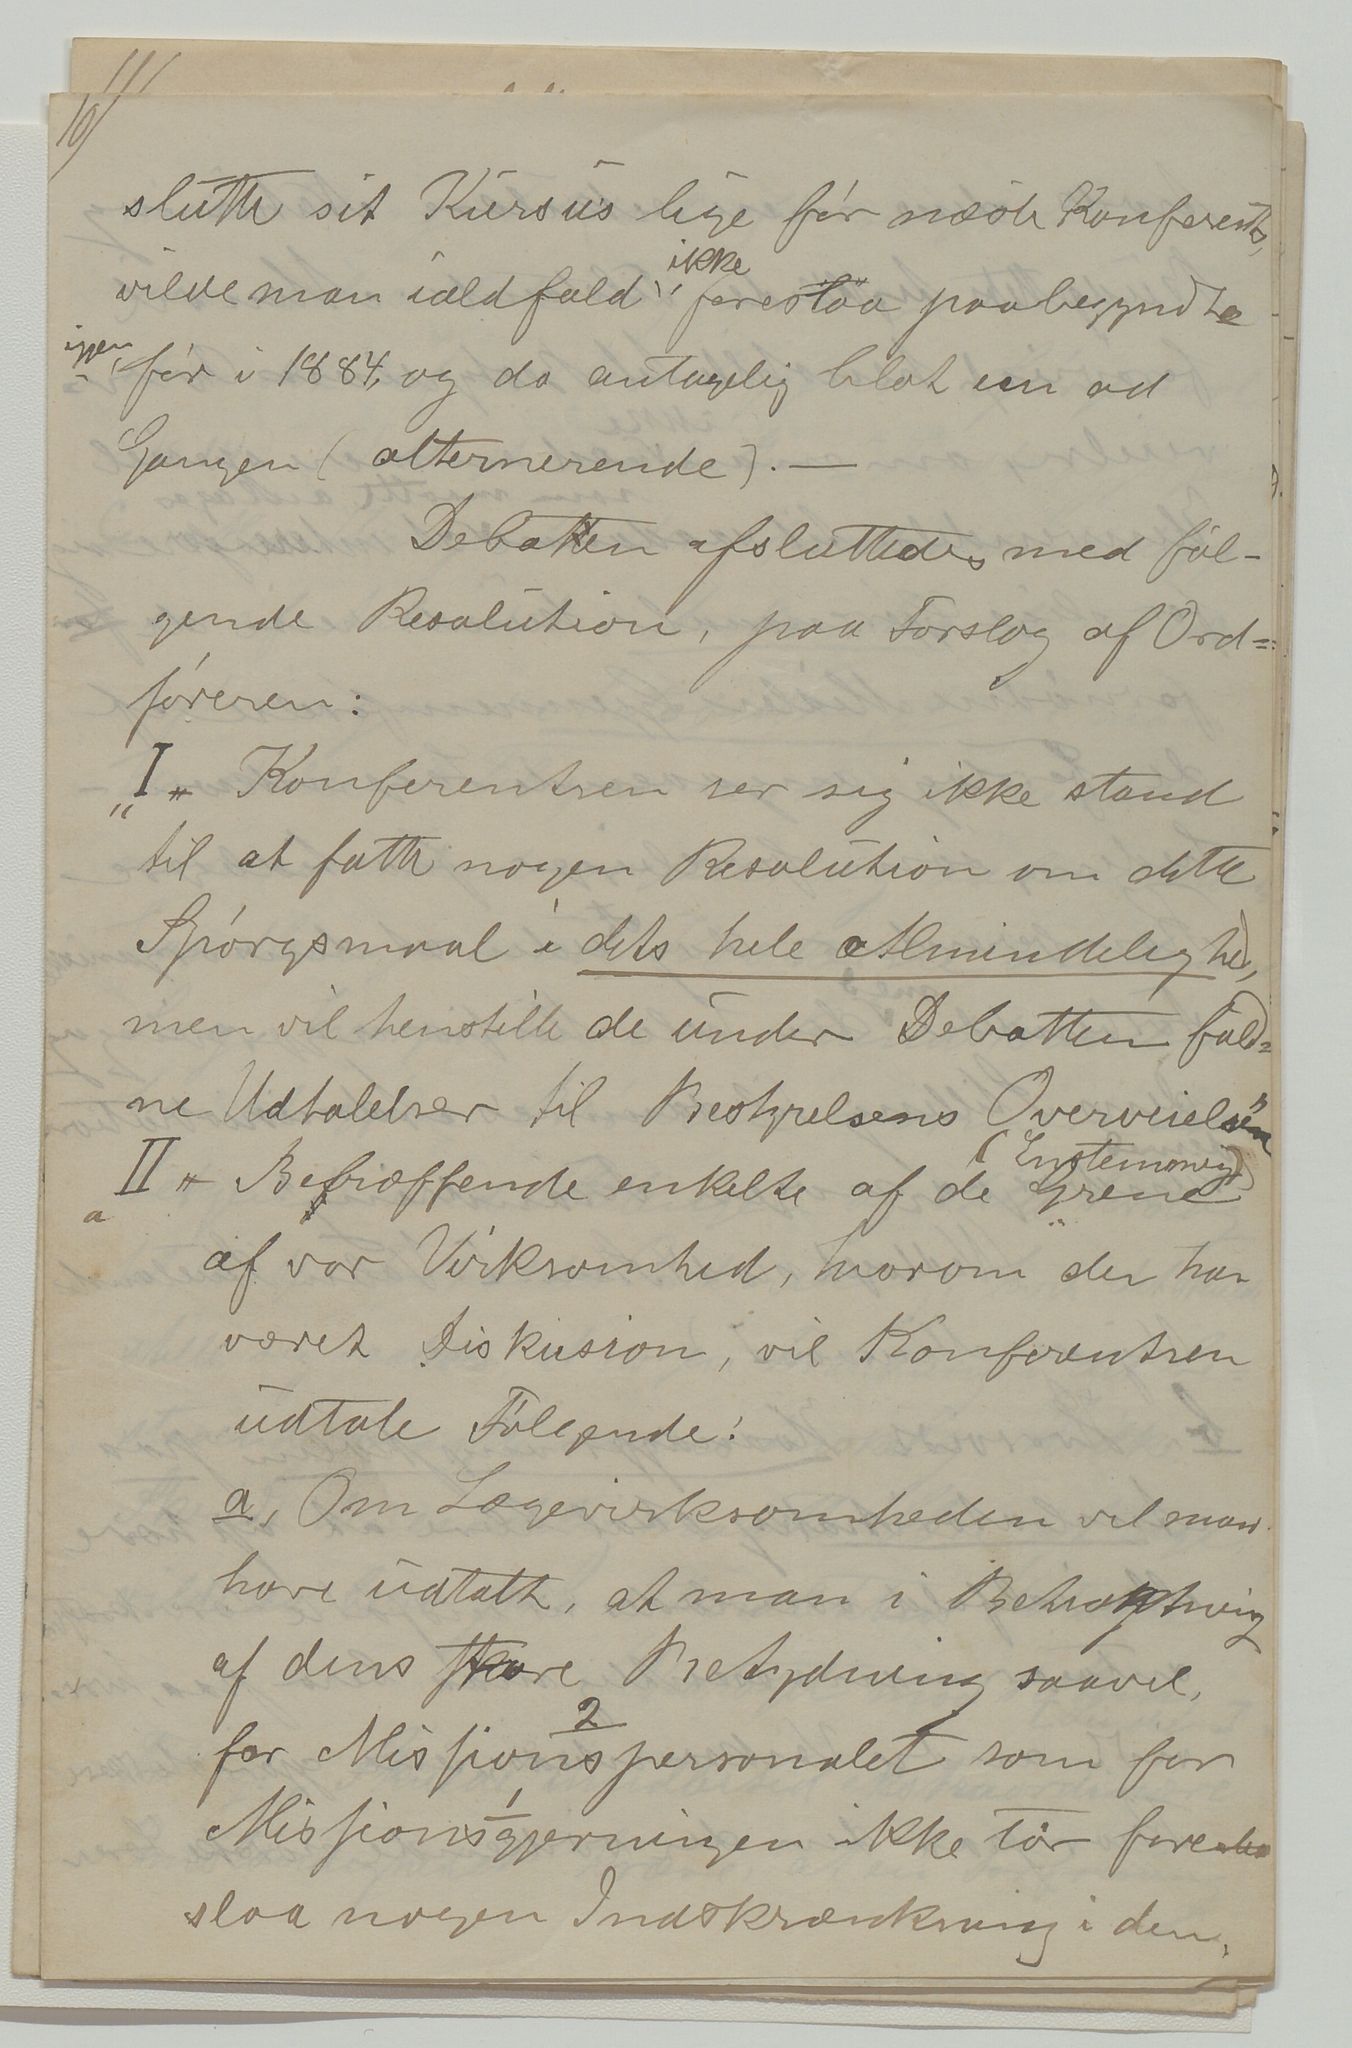 10/
slutte sit Kursus lige før næste Konferents,
vilde man ialdfald ikke foreslaa paabegyndte
igjen før i 1884, og da antagelig blot een ad
Gangen (alternerende). —
Debatten afsluttedes med føl-
gende Resolution, paa Forslag af Ord=
føreren:
"I" Konferentsen ser sig ikke stand
til at fatte nogen Resolution om dette
Spørgsmaal i dets hele Almindelighed,
men vil henstille de under Debatten fald=
ne Udtalelser til Bestyrelsens Overveielse"
(Enstemmig)
II" Betræffende enkelte af de Grene
a
af vor Virksomhed, hvorom der har
været Diskusion, vil Konferentsen
udtale Følgende:
a, Om Lægevirksomheden vil man
have udtalt, at man i Betragtning
af dens store Betydning saavel
2
for Missionspersonalet som for
1
Missionsgjerningen ikke tør fore
slaa nogen Indskrænkning i den,